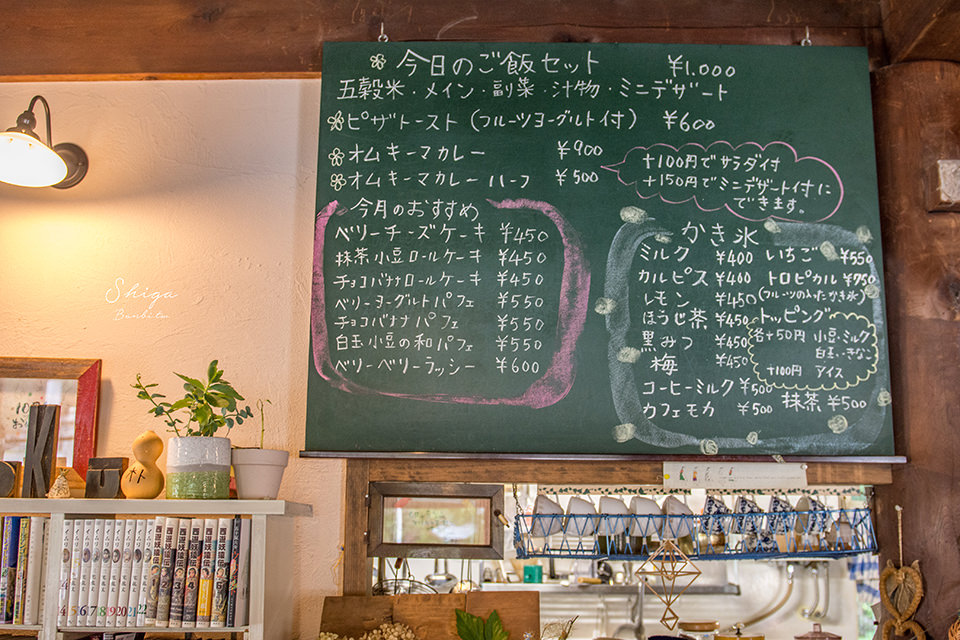 今日のご飯セット ¥1.000
五穀米・メイン・副菜・汁物・ミニデザート
ピザトースト(フルーツヨーグルト付) ¥600
オムキーマカレー ¥900
オムキーマカレーハーフ ¥500
+100円でサラダ付
+150円でミニデザート付に
できます。
今月のおすすめ
ベリーチーズケーキ ¥450
抹茶小豆ロールケーキ ¥450
チョコバナナロールケーキ ¥450
ベリーヨーグルトパフェ ¥550
チョコバナナパフェ ¥550
白玉小豆の和パフェ ¥550
ベリーベリーラッシー ¥600
かき氷
ミルク ¥400
カルピス ¥400
レモン ¥450
ほうじ茶 ¥450
黒みつ ¥450
梅 ¥450
コーヒーミルク ¥500
カフェモカ ¥500
いちご ¥550
トロピカル ¥750
(フルーツの入ったかき氷)
トッピング
各+50円 小豆・ミルク
白玉・きなこ
+100円 アイス
抹茶 ¥500
Shiga
K
西遊妖猿伝
西遊妖猿伝
西遊妖猿伝